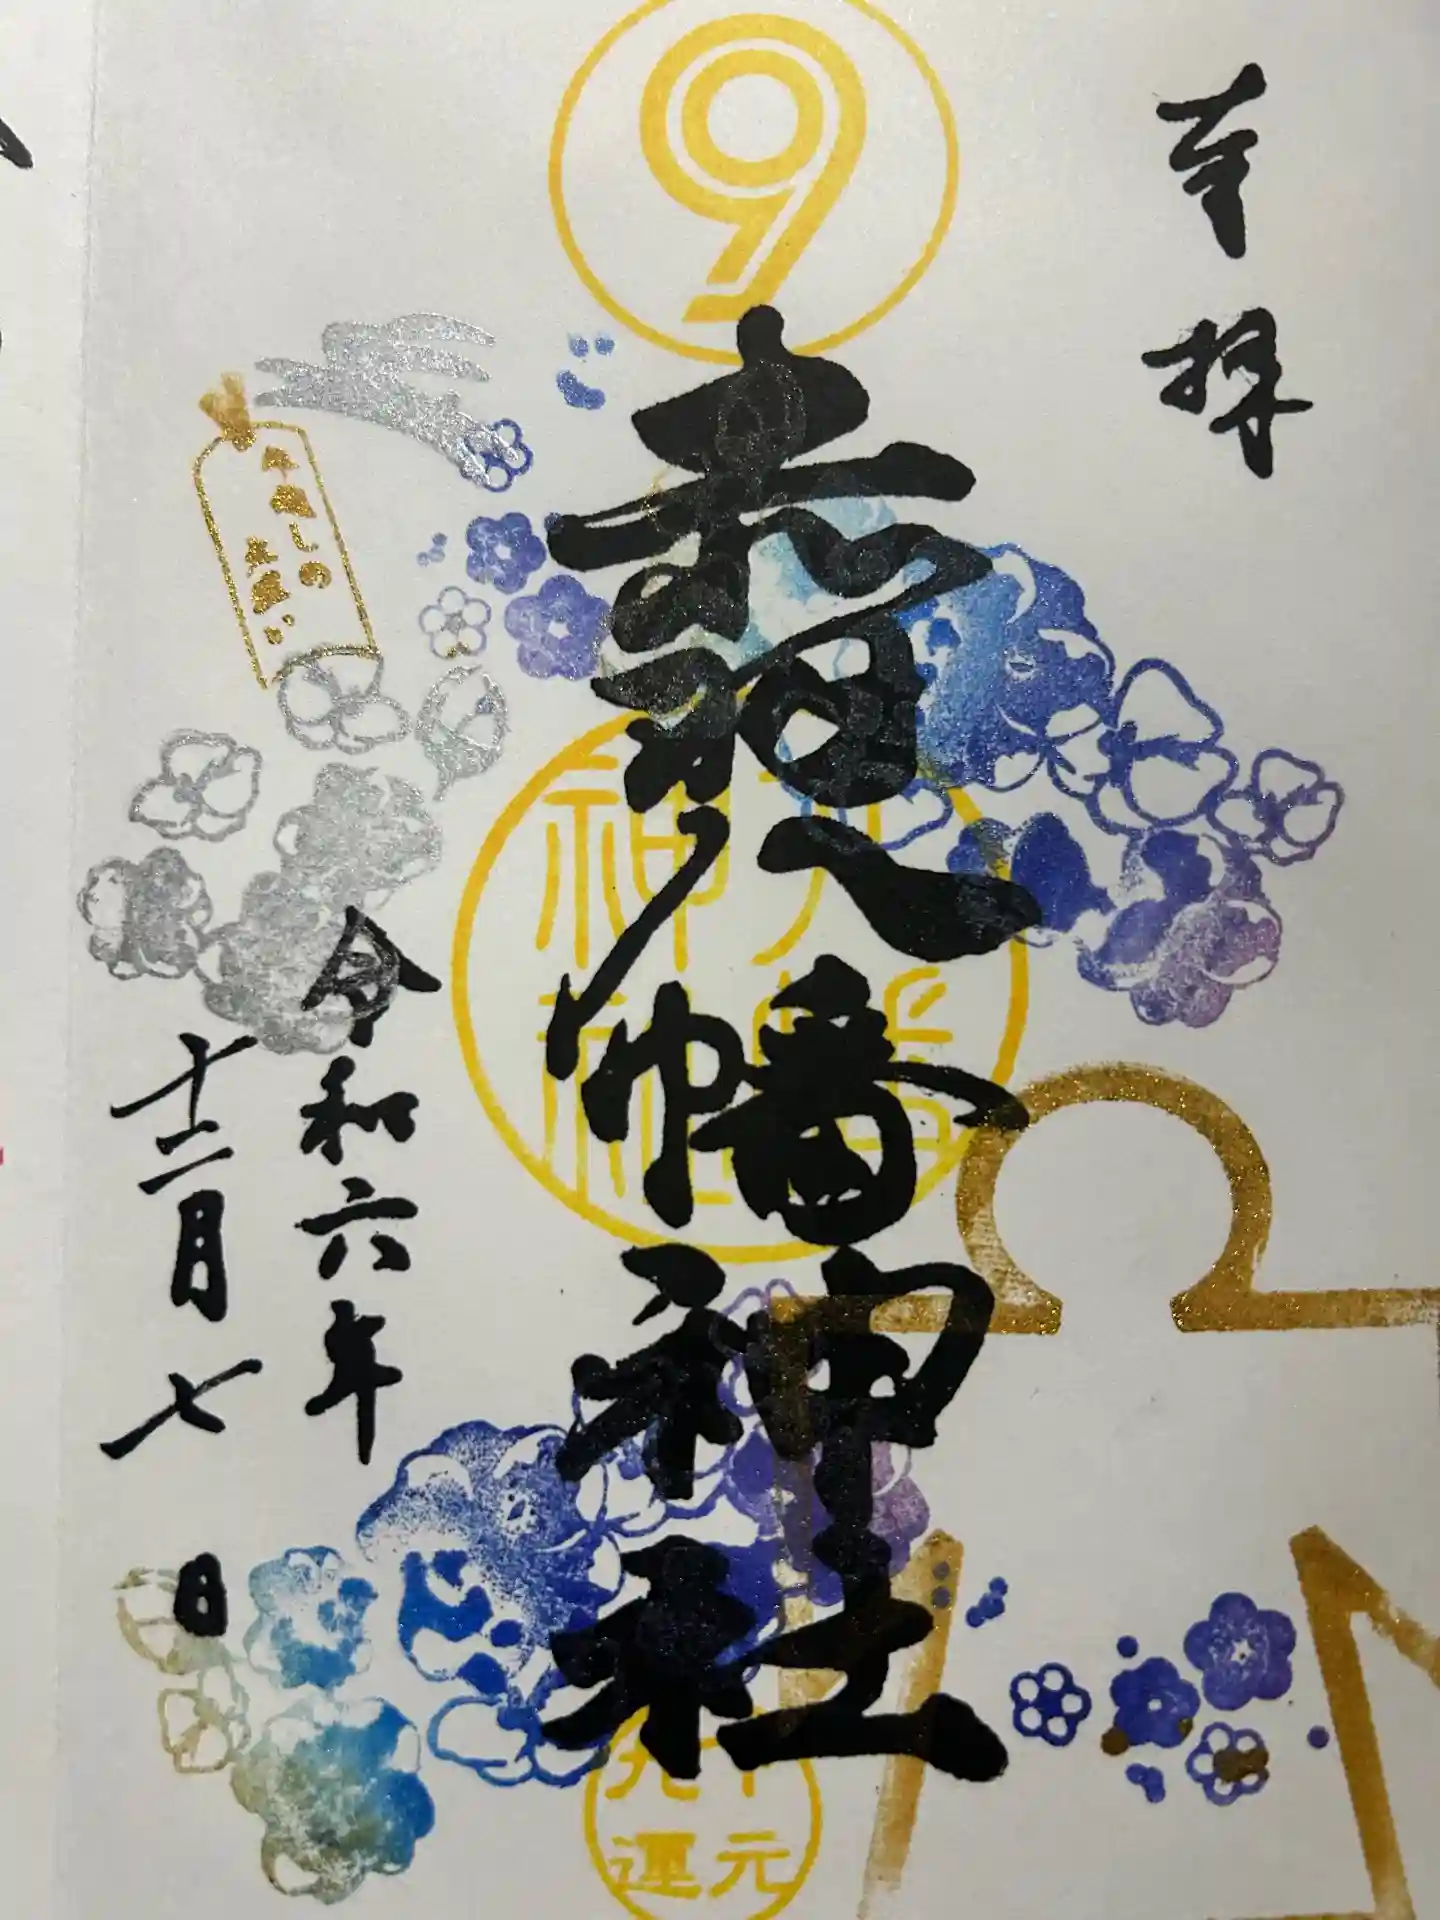 奉拝
八幡神社
令和六年
十二月七日
年越しの
大祓い
9
八幡
神社
下元
九運